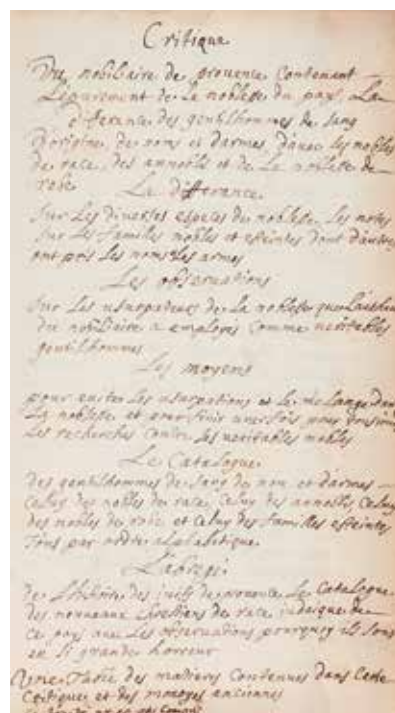 Critique
Du nobiliaire de provence Contenant
L'epurement de La noblesse du pays, La
differance des gentilhommes de sang
d'origine, de noms et d'armes, d'avec les nobles
de race, des annoblis et de La noblesse de
robe La differance
sur Les diverses especes de noblesse Les notes
sur Les familles nobles et esteintes dont d'autres
ont pris Les noms Les armes
Les observations
sur Les usurpateurs de La noblesse que L'autheur
du nobiliaire a employes Comme veritables
gentilshommes
Les moyens
pour eviter Les usurpations et Le mélange dans
La noblesse et pour finir une fois pour tousiours
Les recherches Contre Les veritables nobles
Le Catalogue
des gentilhommes de sang de nom et d'armes
Celuy des nobles de race, Celuy des annoblis Celuy
des nobles de robe et Celuy des familles esteintes
Tous par ordre alphabetique.
L'abregé
de L'histoire des juifs de provence Le Catalogue
des nouveaux Chretiens de race judaique de
Ce pays avec Les observations pourquoy ils sont
en si grande horreur
Une Table des matieres Contenues dans Cette
Critique et des monoyes anciennes